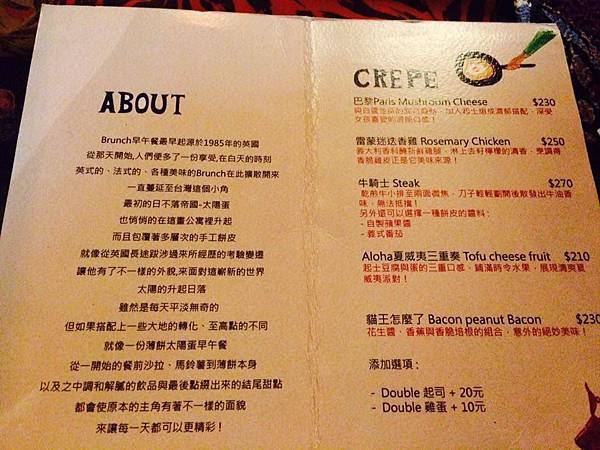 ABOUT
Brunch早午餐最早起源於1985年的英國
從那天開始,人們便多了一份享受,在白天的時刻
英式的、法式的、各種美味的Brunch在此擴散開來
一直蔓延至台灣這個小角
最初的日不落帝國-太陽蛋
也悄悄的在這畫公寓裡升起
而且包覆著多層次的手工餅皮
就像從英國長途跋涉過來所經歷的考驗變遷
讓他有了不一樣的外貌,來面對這嶄新的世界
太陽的升起日落
雖然是每天平淡無奇的
但如果搭配上一些大地的轉化、至高點的不同
就像一份薄餅太陽蛋早午餐
從一開始的餐前沙拉、馬鈴薯到薄餅本身
以及之中調和解膩的飲品與最後點綴出來的結尾甜點
都會使原本的主角有著不一樣的面貌
來讓每一天都可以更精彩！
CREPE
巴黎Paris Mushroom Cheese $230
加入起士焗成濃郁搭配，深受
女孩喜愛的滑順口感！
雷蒙迷迭香雞 Rosemary Chicken $250
義大利香料醃新鮮雞腿，淋上去籽檸檬的清香，烹調得
香脆雞皮正是它美味來源！
牛騎士 Steak $270
乾煎牛小排至兩面微焦，刀子輕輕劃開後散發出牛油香
味，無法抵擋！
另外還可以選擇一種餅皮的醬料：
- 自製蘋果醬
- 義式番茄
Aloha夏威夷三重奏 Tofu cheese fruit $210
起士豆腐與蛋的三重口感，鋪滿時令水果，展現清爽夏
威夷派對！
貓王怎麼了 Bacon peanut Bacon $230
花生醬、香蕉與香脆培根的組合，意外的絕妙美味！
添加選項：
- Double 起司 + 20元
- Double 雞蛋 + 10元